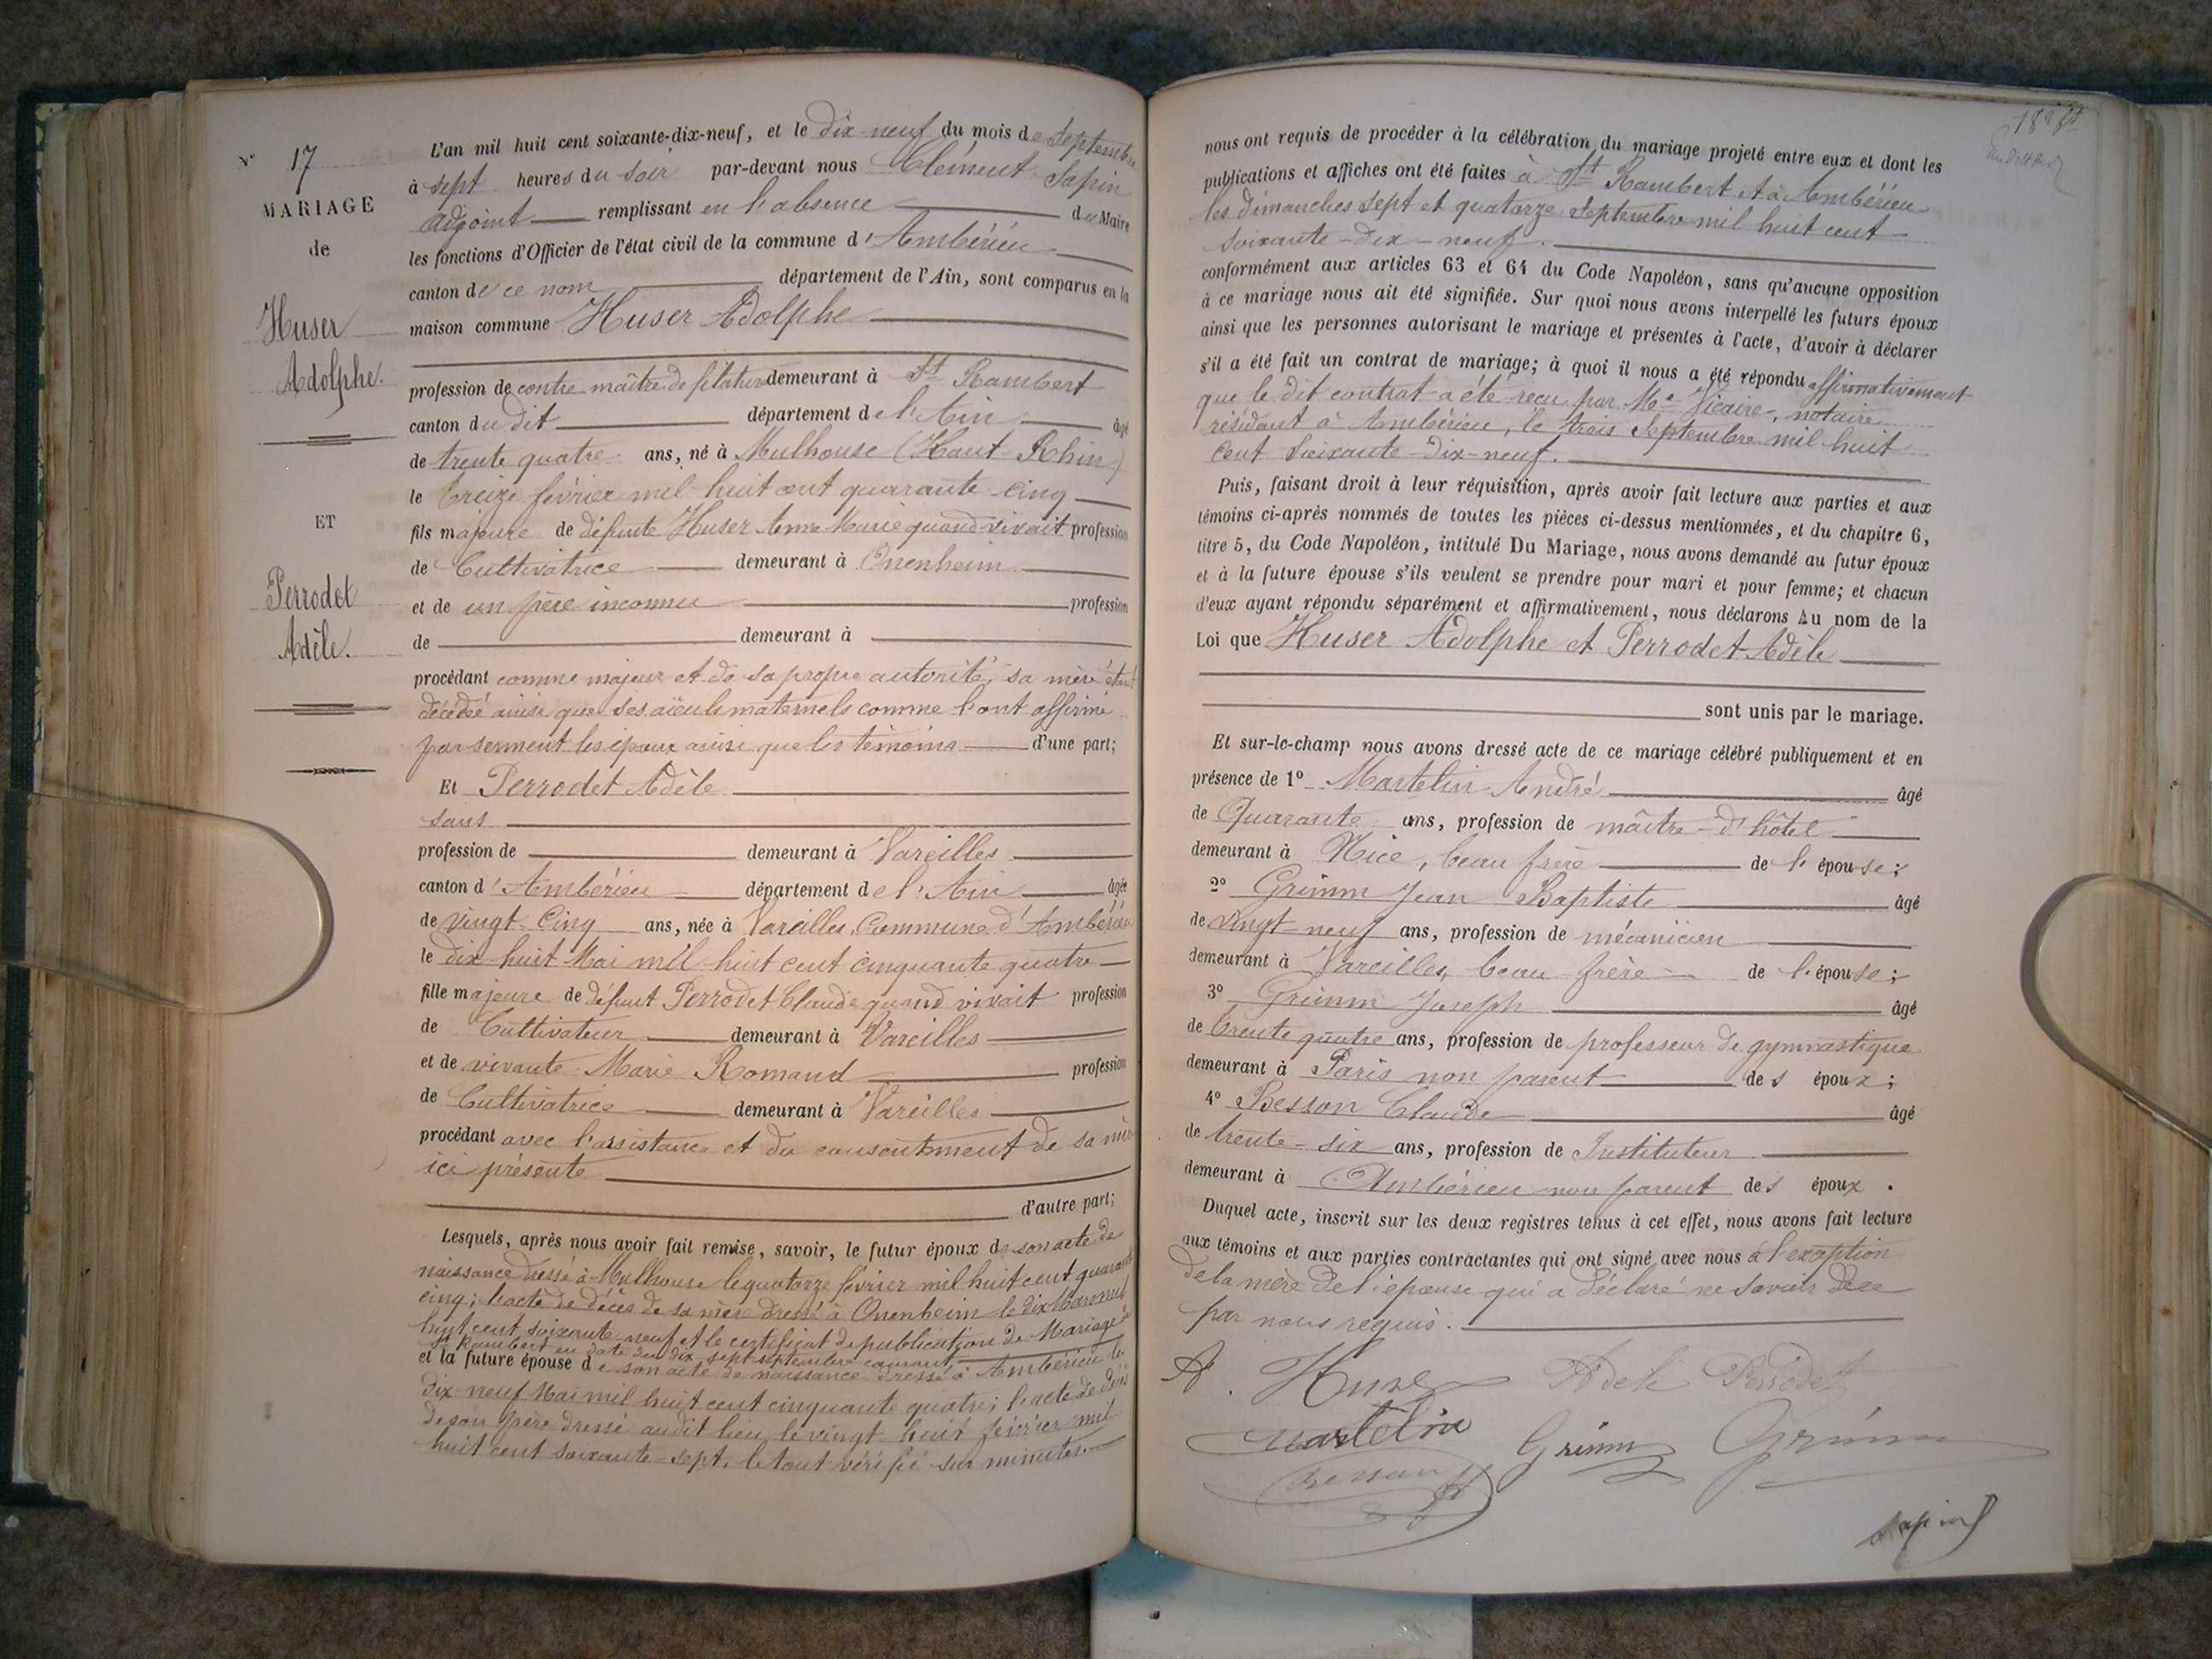 N° 17
MARIAGE
de
Huser
Adolphe.
ET
Perrodet
Adèle.
L'an mil huit cent soixante-dix-neuf, et le dix-neuf du mois de Septembre
à sept heures du soir par-devant nous Clément Sapin
adjoint remplissant en l'absence du Maire
les fonctions d'Officier de l'état civil de la commune d'Ambérieu
canton de ce nom département de l'Ain, sont comparus en la
maison commune Huser Adolphe
profession de contre maître de filature demeurant à St Rambert
canton du dit département de l'Ain âgé
de trente quatre ans, né à Mulhouse (Haut-Rhin)
le treize février mil huit cent quarante-cinq
fils majeure de défunte Huser Anne Marie quand vivait profession
de Cultivatrice demeurant à Onenheim
et de un père inconnu profession
de demeurant à
procédant comme majeur et de sa propre autorité, sa mère étant
décédée ainsi que ses aïeuls maternels comme l'ont affirmé
par serment les époux ainsi que les témoins d'une part;
Et Perrodet Adèle
sans
profession de demeurant à Vareilles
canton d'Ambérieu département de l'Ain âgée
de vingt-cinq ans, née à Vareilles, Commune d'Ambérieu
le dix-huit Mai mil huit cent cinquante quatre
fille majeure de défunt Perrodet Claude quand vivait profession
de Cultivateur demeurant à Vareilles
et de vivante Marie Romand profession
de Cultivatrice demeurant à Vareilles
procédant avec l'assistance et du consentement de sa mère
ici présente
d'autre part;
Lesquels, après nous avoir fait remise, savoir, le futur époux de son acte de
naissance dressé à Mulhouse le quatorze février mil huit cent quarante
cinq; l'acte de décès de sa mère dressé à Onenheim le dix Mars mil
huit cent soixante-neuf et le certificat de publication de Mariage de
St Rambert en date du dix sept septembre courant,
et la future épouse de son acte de naissance dressé à Ambérieu le
dix-neuf Mai mil huit cent cinquante quatre; l'acte de décès
de son père dressé au dit lieu le vingt huit février mil
huit cent soixante-sept, le tout vérifié sur minutes.
nous ont requis de procéder à la célébration du mariage projeté entre eux et dont les
publications et affiches ont été faites à St Rambert et à Ambérieu
les dimanches sept et quatorze Septembre mil huit cent
soixante-dix-neuf.
conformément aux articles 63 et 64 du Code Napoléon, sans qu'aucune opposition
à ce mariage nous ait été signifiée. Sur quoi nous avons interpellé les futurs époux
ainsi que les personnes autorisant le mariage et présentes à l'acte, d'avoir à déclarer
s'il a été fait un contrat de mariage; à quoi il nous a été répondu affirmativement
que le dit contrat a été reçu par Me Vicaire, notaire
résidant à Ambérieu, le trois Septembre mil huit
cent soixante-dix-neuf.
Puis, faisant droit à leur réquisition, après avoir fait lecture aux parties et aux
témoins ci-après nommés de toutes les pièces ci-dessus mentionnées, et du chapitre 6,
titre 5, du Code Napoléon, intitulé Du Mariage, nous avons demandé au futur époux
et à la future épouse s'ils veulent se prendre pour mari et pour femme; et chacun
d'eux ayant répondu séparément et affirmativement, nous déclarons Au nom de la
Loi que Huser Adolphe et Perrodet Adèle
sont unis par le mariage.
Et sur-le-champ nous avons dressé acte de ce mariage célébré publiquement et en
présence de 1° Martelin André âgé
de Quarante ans, profession de maître-d'hôtel
demeurant à Nice, beau frère de l'épouse;
2° Grimm Jean Baptiste âgé
de vingt-neuf ans, profession de mécanicien
demeurant à Vareilles, beau frère de l'épouse;
3° Grimm Joseph âgé
de trente quatre ans, profession de professeur de gymnastique
demeurant à Paris non parent des époux;
4° Besson Claude âgé
de trente-six ans, profession de Instituteur
demeurant à Ambérieu non parent des époux.
Duquel acte, inscrit sur les deux registres tenus à cet effet, nous avons fait lecture
aux témoins et aux parties contractantes qui ont signé avec nous à l'exception
de la mère de l'épouse qui a déclaré ne savoir de ce
par nous requis.
A. Huser Adèle Perrodet
Martelin Grimm Grimm
Besson
Sapin